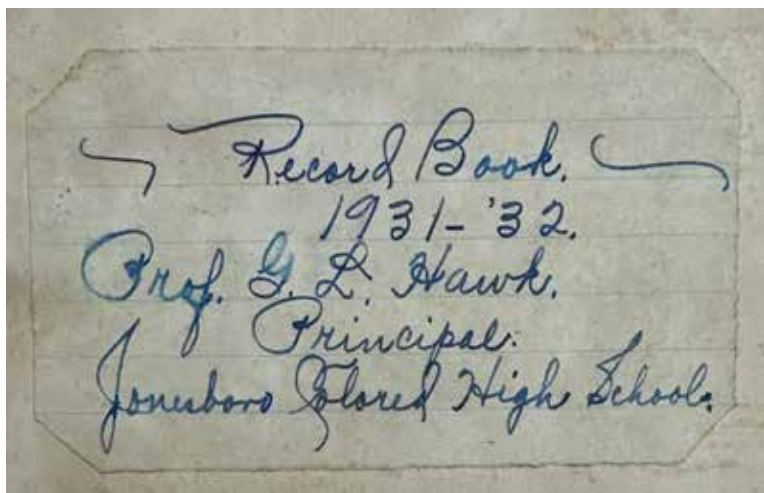 Record Book.
1931-'32.
Prof. G. L. Hawk.
Principal.
Jonesboro Colored High School.